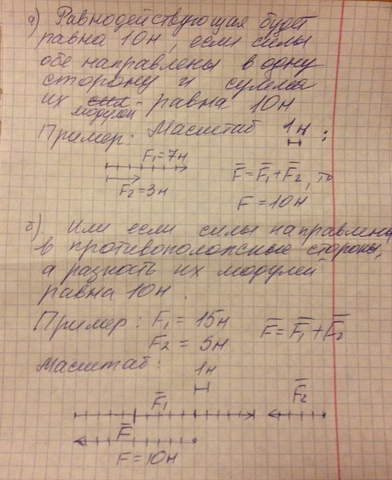 а) Равнодействующая будет
равна 10н, если силы
обе направлены в одну
сторону и сумма
их модулей - равна 10н
Пример: Масштаб 1н;
F₁=7н
F₂=3н
F̅=F̅₁+F̅₂, то
F=10н
б) Или если силы направлены
в противоположные стороны,
а разность их модулей
равна 10н.
Пример: F₁ = 15н
F₂ = 5н
F̅=F̅₁+F̅₂
Масштаб:
1н
F̅₁
F̅₂
F̅
F=10н